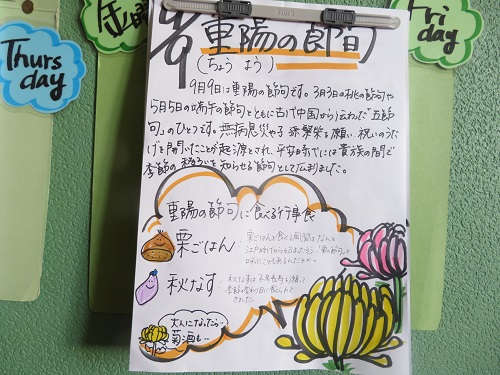 Thurs
day
金曜
Fri
day
9/9 重陽の節句
(ちょう よう)
9月9日は重陽の節句です。3月3日の桃の節句や
5月5日の端午の節句とともに古く中国から伝わった「五節
句」のひとつです。無病息災や子孫繁栄を願い、祝いのうた
げを開いたことが起源とされ、平安時代には貴族の間で
季節の移ろいを知らせる節句として広まりました。
重陽の節句に食べる行事食
栗ごはん
栗ごはんを食べる風習は
江戸時代から
秋なす
秋なすは不老長寿を願って
大人になったら…
菊酒も…